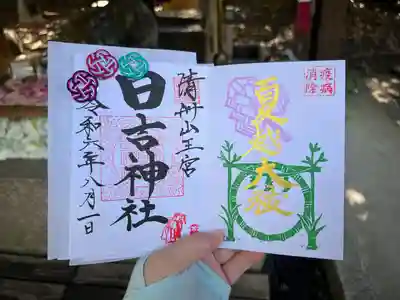 夏越大祓
疫病
消除
清洲山王宮
日吉神社
令和六年八月一日